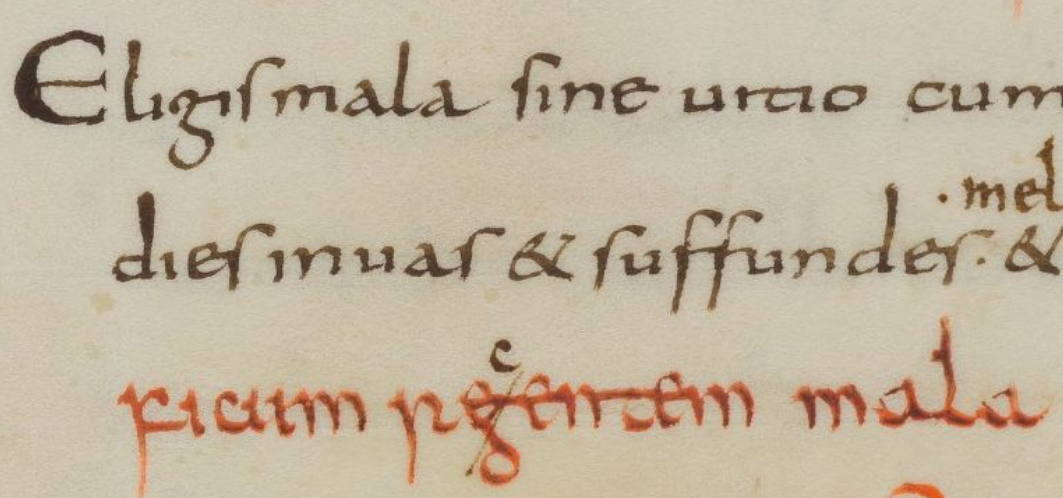 Eligis mala sine uitio cum
· mel
dies in uas & suffundes. &
c
ficum regentem mala